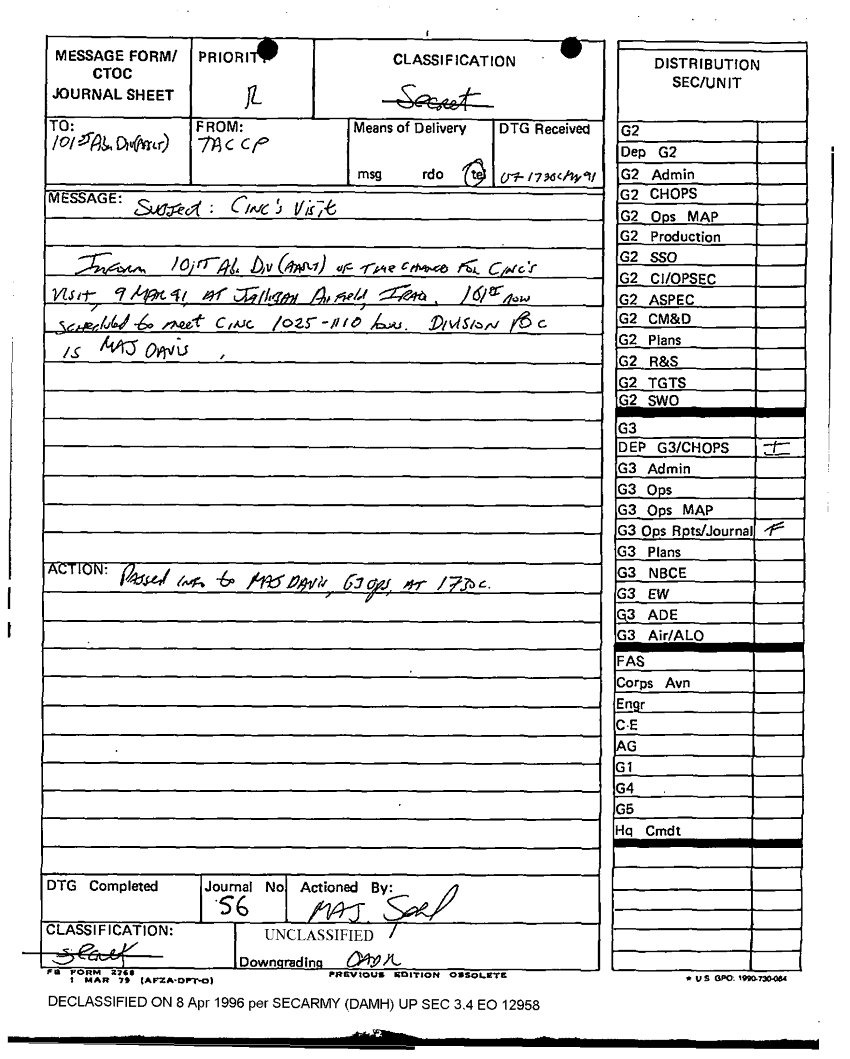 MESSAGE FORM/
CTOC
JOURNAL SHEET
PRIORITY
R
CLASSIFICATION
Secret
TO:
101st Abn Div (AASLT)
FROM:
TAC CP
Means of Delivery
msg rdo tel
DTG Received
07-1730C Mar 91
MESSAGE: Subject: CINC's Visit
Inform 101st Abn Div (AASLT) of time change for CINC's
visit, 9 Mar 91, at Airfield, Iraq. 101st now
scheduled to meet CINC 1025-1110 hours. Division POC
is MAJ DAVIS
ACTION: Passed info to MAJ DAVIS, G3 Ops, at 1730C.
DTG Completed
Journal No
56
Actioned By:
MAJ.
CLASSIFICATION:
Secret
UNCLASSIFIED
Downgrading OADR
FB FORM 2768
1 MAR 79 (AFZA-DPT-O)
PREVIOUS EDITION OBSOLETE
DISTRIBUTION
SEC/UNIT
G2
Dep G2
G2 Admin
G2 CHOPS
G2 Ops MAP
G2 Production
G2 SSO
G2 CI/OPSEC
G2 ASPEC
G2 CM&D
G2 Plans
G2 R&S
G2 TGTS
G2 SWO
G3
DEP G3/CHOPS I
G3 Admin
G3 Ops
G3 Ops MAP
G3 Ops Rpts/Journal F
G3 Plans
G3 NBCE
G3 EW
G3 ADE
G3 Air/ALO
FAS
Corps Avn
Engr
C-E
AG
G1
G4
G5
Hq Cmdt
* U S GPO: 1990-730-064
DECLASSIFIED ON 8 Apr 1996 per SECARMY (DAMH) UP SEC 3.4 EO 12958